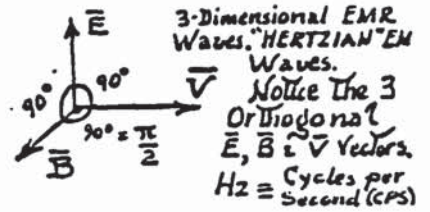 Ē
90°
90°
V̄
90° = π/2
B̄
3-Dimensional EMR
Waves. "HERTZIAN" EM
Waves.
Notice The 3
Orthogonal
Ē, B̄ & V̄ Vectors.
Hz ≡ Cycles per
Second (CPS)